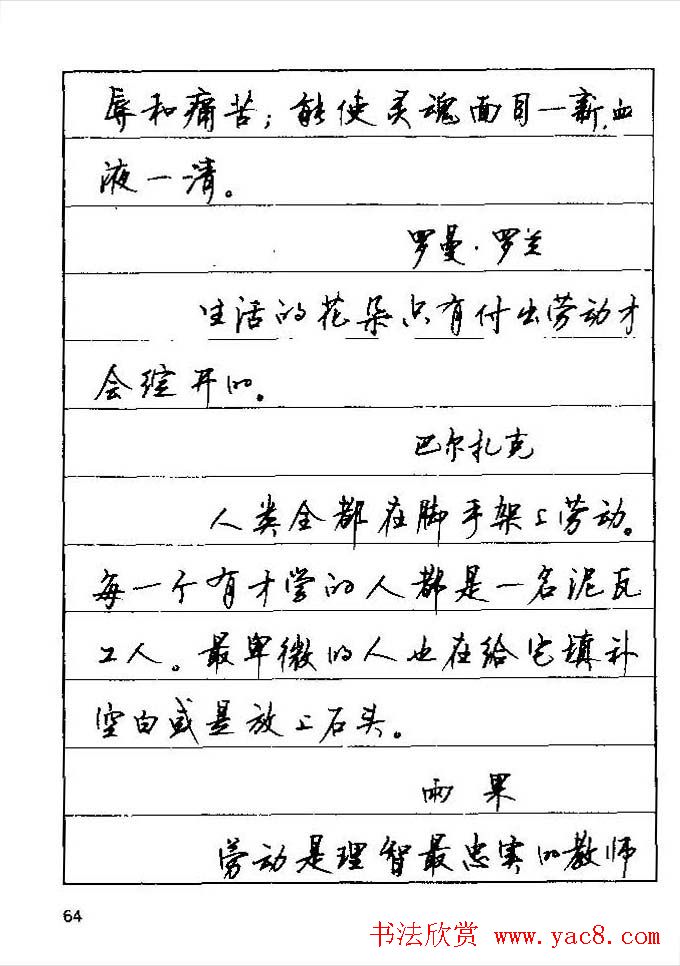 辱和痛苦；能使灵魂面目一新，血
液一清。
罗曼·罗兰
生活的花朵只有付出劳动才
会绽开的。
巴尔扎克
人类全都在脚手架上劳动。
每一个有才学的人都是一名泥瓦
工人。最卑微的人也在给它填补
空白或是放上石头。
雨果
劳动是理智最忠实的教师
64
书法欣赏 www.yac8.com